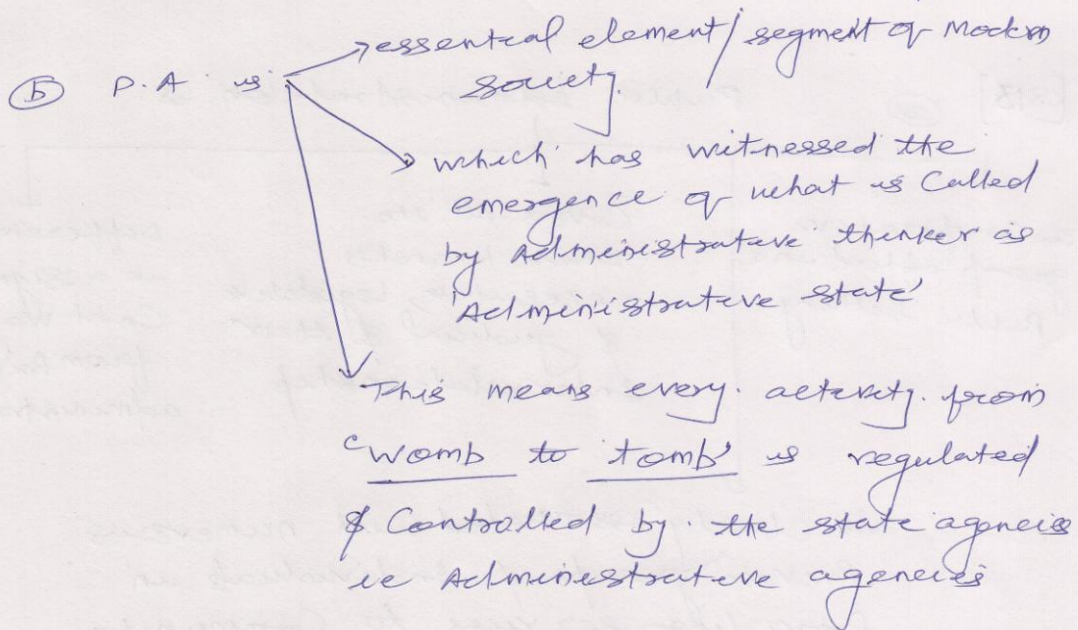 (b) P.A is → essential element/segment of Modern
society
→ which has witnessed the
emergence of what is Called
by Administrative thinker as
'Administrative state'
→ This means every activity from
'womb to tomb' is regulated
& Controlled by the state agencies
ie Administrative agencies